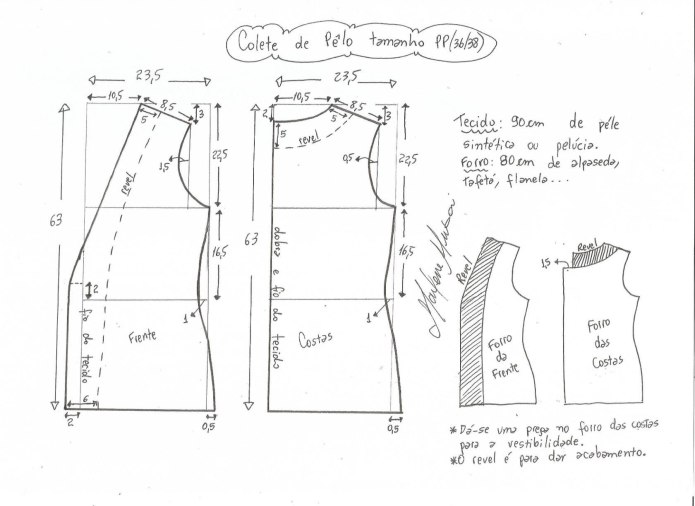 Colete de Pêlo tamanho PP(36/38)
23,5
10,5
8,5
5
3
revel
1,5
22,5
63
16,5
2
fio do tecido
Frente
1
6
2
0,5
23,5
10,5
8,5
2
5
5
3
revel
0,5
22,5
63
dobra e fio do tecido
16,5
1
Costas
0,5
Tecido: 90cm de pêle
sintética ou pelúcia.
Forro: 80cm de alpaseda,
tafetá, flanela...
Revel
Forro
da
Frente
Revel
1,5
Forro
das
Costas
*Dá-se uma prega no forro das costas
para a vestibilidade.
*O revel é para dar acabamento.